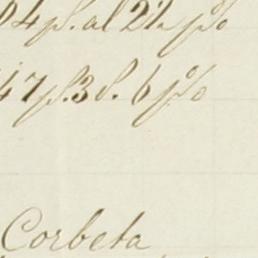 24 p. al 22 p%
47 p. 3 d. 6 p%
Corbeta